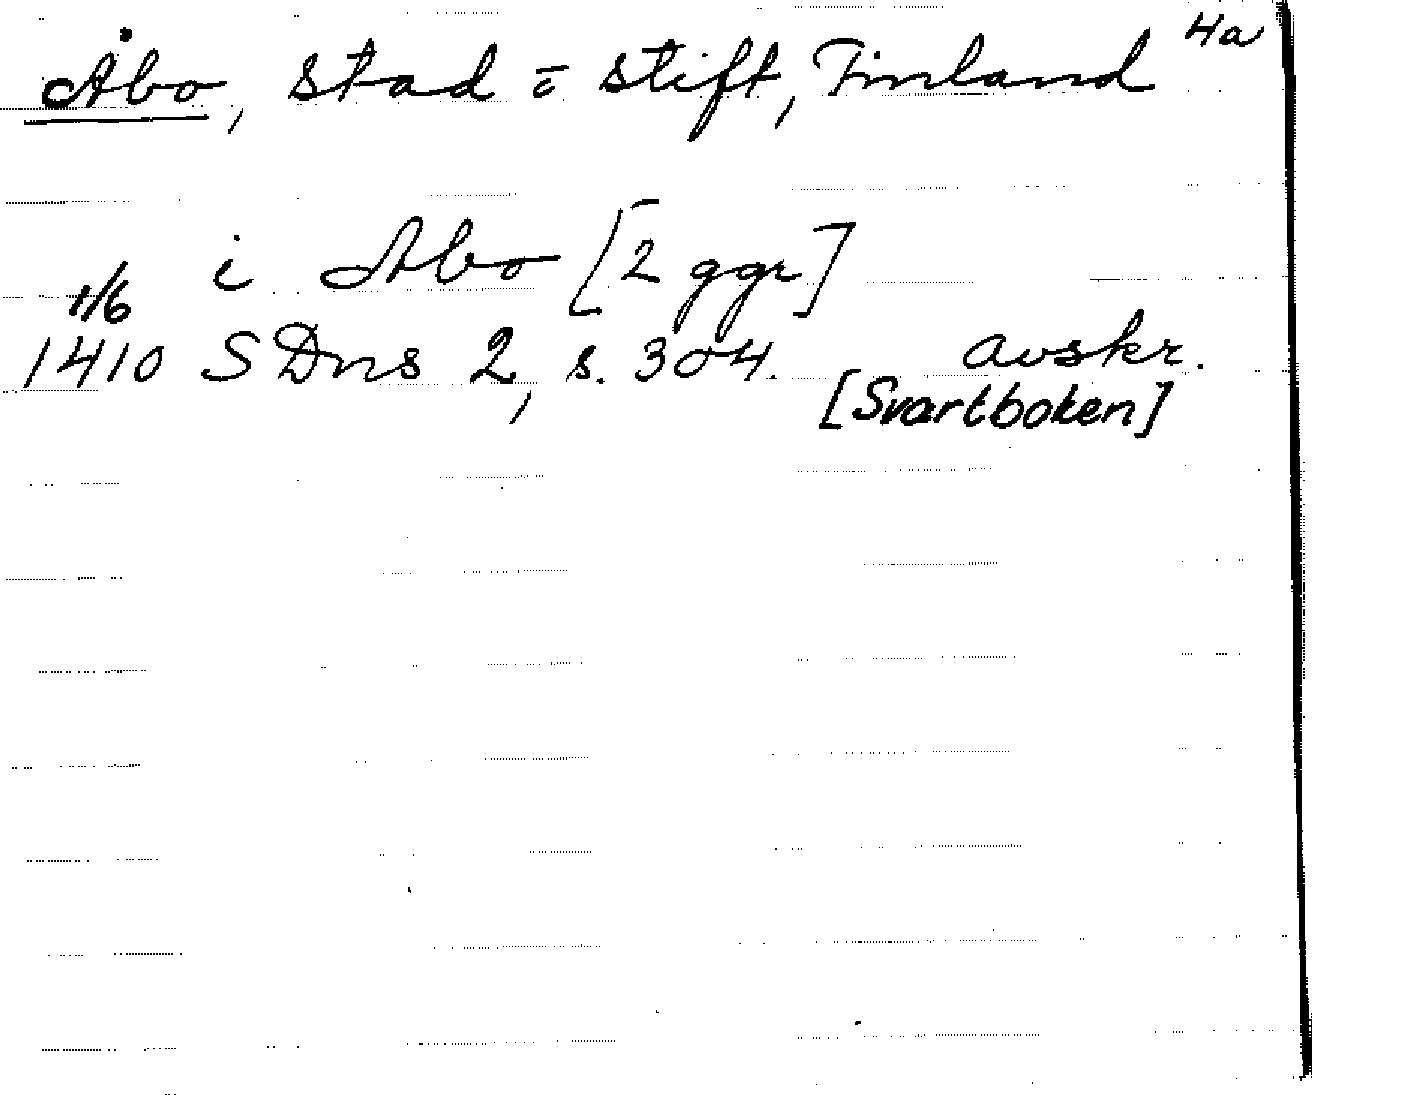 Åbo, stad o stift, Finland 4a
i Abo [2 ggr]
1/6
1410 SDns 2, s. 304. avskr.
[Svartboken]